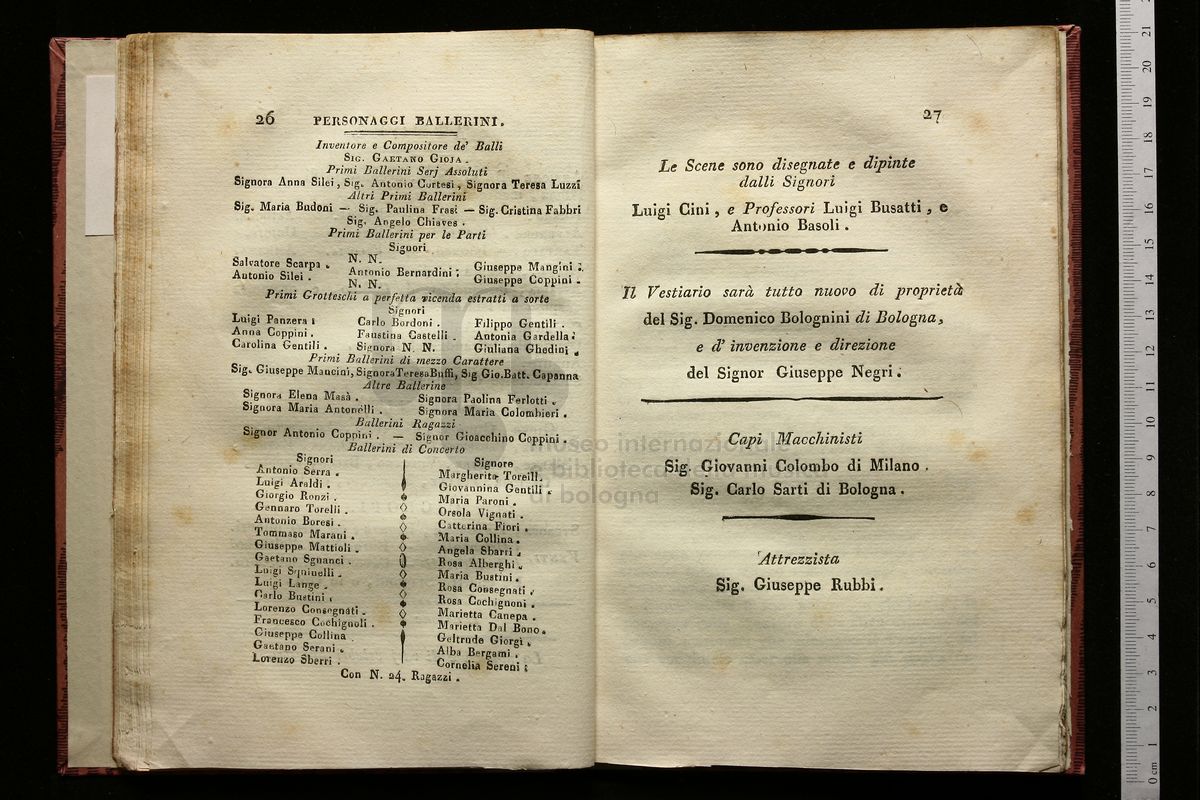 26 PERSONAGGI BALLERINI.
Inventore e Compositore de' Balli
SIG. GAETANO GIOJA.
Primi Ballerini Serj Assoluti
Signora Anna Silei, Sig. Antonio Cortesi, Signora Teresa Luzzi
Altri Primi Ballerini
Sig. Maria Budoni — Sig. Paulina Frasi — Sig. Cristina Fabbri
Sig. Angelo Chiaves.
Primi Ballerini per le Parti
Signori
N. N.
Salvatore Scarpa. Antonio Bernardini. Giuseppe Mangini.
Antonio Silei. N. N. Giuseppe Coppini.
Primi Grotteschi a perfetta vicenda estratti a sorte
Signori
Luigi Panzera. Carlo Bordoni. Filippo Gentili.
Anna Coppini. Faustina Castelli. Antonia Gardella.
Carolina Gentili. Signora N. N. Giuliana Ghedini.
Primi Ballerini di mezzo Carattere
Sig. Giuseppe Mancini, Signora Teresa Buffi, Sig Gio. Batt. Capanna
Altre Ballerine
Signora Elena Masà. Signora Paolina Ferlotti.
Signora Maria Antonelli. Signora Maria Colombieri.
Ballerini Ragazzi
Signor Antonio Coppini. — Signor Gioacchino Coppini.
Ballerini di Concerto
Signori
Antonio Serra.
Luigi Araldi.
Giorgio Ronzi.
Gennaro Torelli.
Antonio Boresi.
Tommaso Marani.
Giuseppe Mattioli.
Gaetano Sgnanci.
Luigi
Luigi Lange.
Carlo Bustini.
Lorenzo Consegnati.
Francesco Cochignoli.
Giuseppe Collina
Gaetano Serani.
Lorenzo Sberri.
Signore
Margherita Torelli.
Giovannina Gentili.
Maria Paroni.
Orsola Vignati.
Catterina Fiori.
Maria Collina.
Angela Sbarri.
Rosa Alberghi.
Maria Bustini.
Rosa Consegnati.
Rosa Cochignoni.
Marietta Canepa.
Marietta Dal Bono.
Geltrude Giorgi.
Alba Bergami.
Cornelia Sereni.
Con N. 24. Ragazzi.
27
Le Scene sono disegnate e dipinte
dalli Signori
Luigi Cini, e Professori Luigi Busatti, e
Antonio Basoli.
Il Vestiario sarà tutto nuovo di proprietà
del Sig. Domenico Bolognini di Bologna,
e d' invenzione e direzione
del Signor Giuseppe Negri.
Capi Macchinisti
Sig. Giovanni Colombo di Milano.
Sig. Carlo Sarti di Bologna.
Attrezzista
Sig. Giuseppe Rubbi.
museo internazionale
e biblioteca della musica
di bologna
0 cm 1 2 3 4 5 6 7 8 9 10 11 12 13 14 15 16 17 18 19 20 21